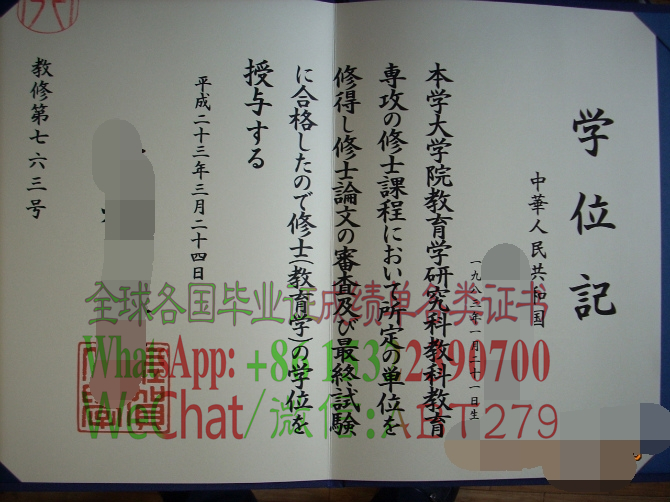 学位記
中華人民共和国
一九八三年一月二十一日生
本学大学院教育学研究科教科教育
専攻の修士課程において所定の単位を
修得し修士論文の審査及び最終試験
に合格したので修士(教育学)の学位を
授与する
平成二十三年三月二十四日
教修第七六三号
全球各国毕业证成绩单各类证书
WeChat/微信:ADT279